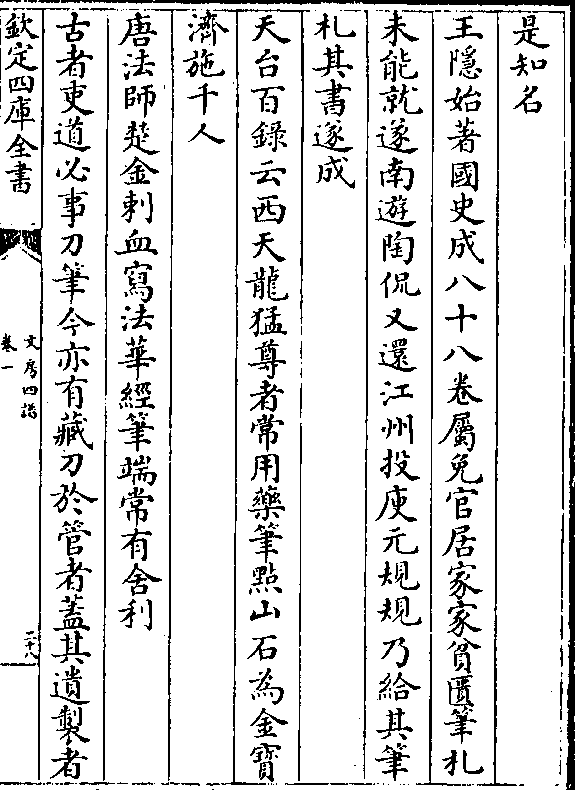 是知名
王隱始著國史成八十八卷屬免官居家家貧匱筆札
未能就遂南遊陶侃又還江州投庾元規規乃給其筆
札其書遂成
天台百錄云西天龍猛尊者常用藥筆點山石為金寶
濟施千人
唐法師楚金刺血寫法華經筆端常有舍利
古者吏道必事刀筆今亦有藏刀於管者蓋其遺製者
欽定四庫全書
文房四譜
卷一
二十八